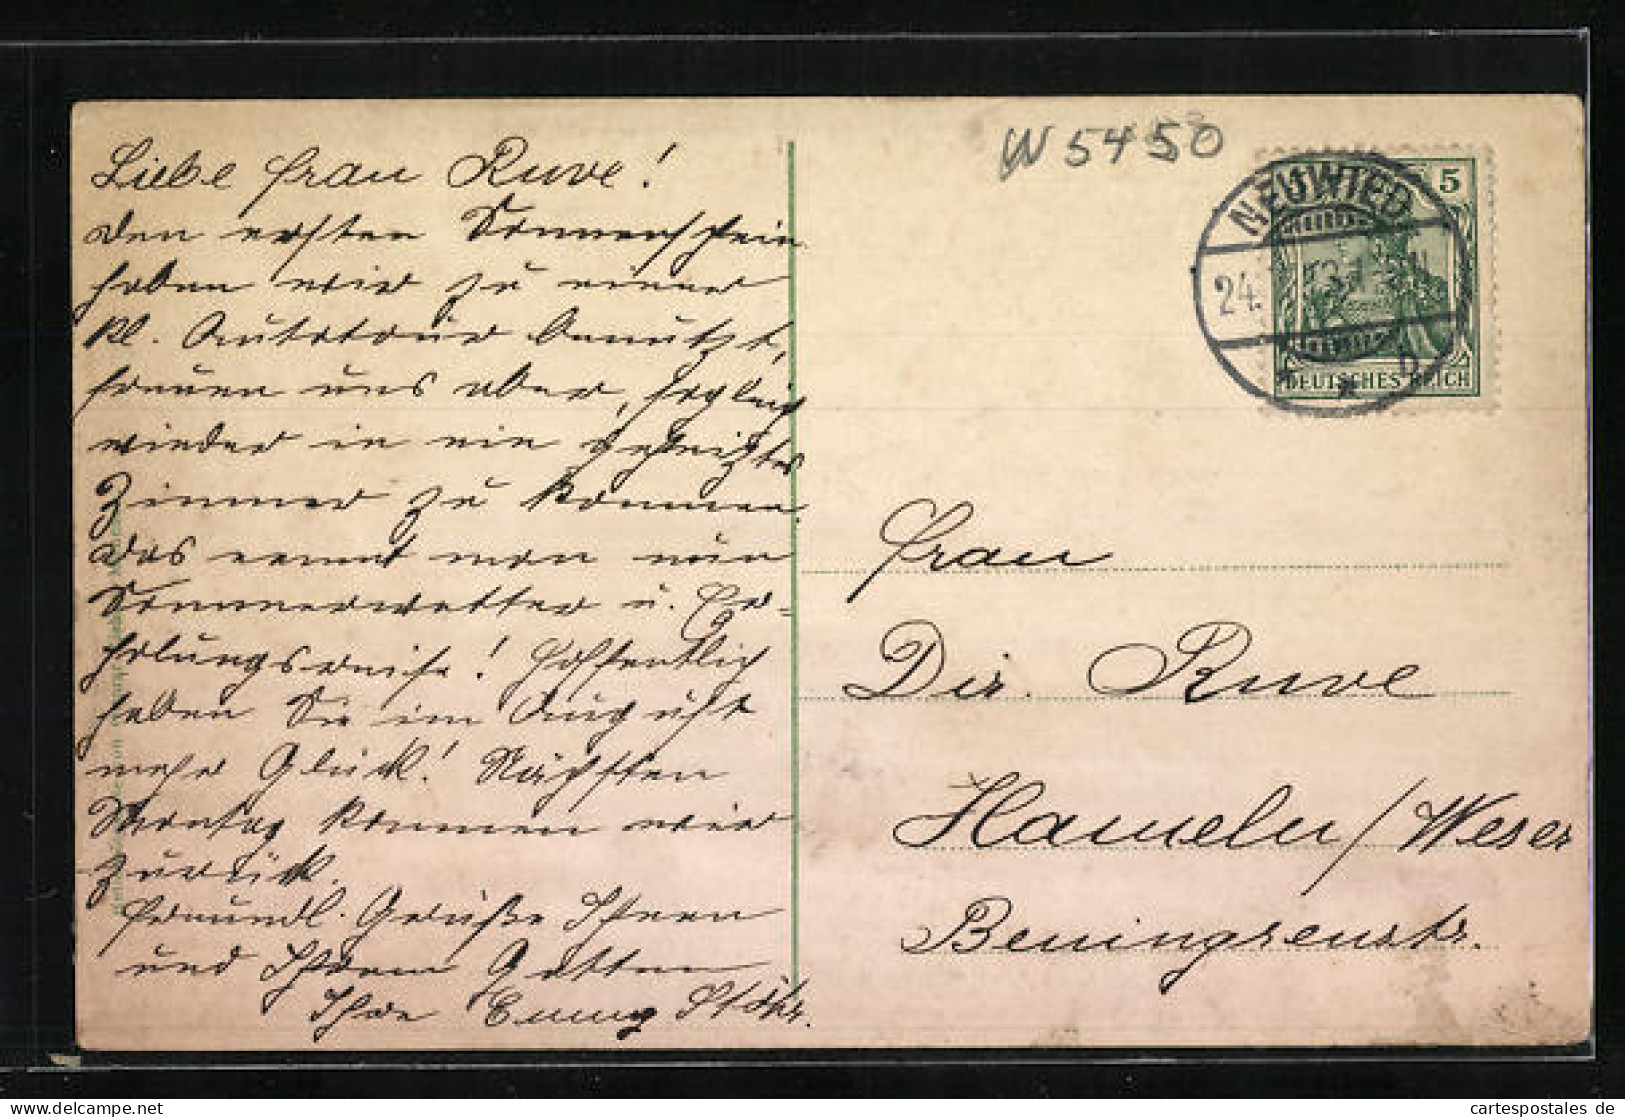 Liebe Frau Ruve!
Den ersten Sonnenschein
haben wir zu einer
kl. Autotour benutzt,
freuen uns aber, sogleich
wieder in ein geheiztes
Zimmer zu kommen.
Das nennt man nun
Sommerwetter u. Er-
holungsreise! Hoffentlich
haben Sie im August
mehr Glück! Nächsten
Montag kommen wir
zurück.
Freundl. Grüße Ihnen
und Ihrem Gatten
Ihre Emmy
W 5450
NEUWIED
24.
5
DEUTSCHES REICH
Frau
Dir. Ruve
Hameln/Weser
Benningsenstr.
cartespostales de